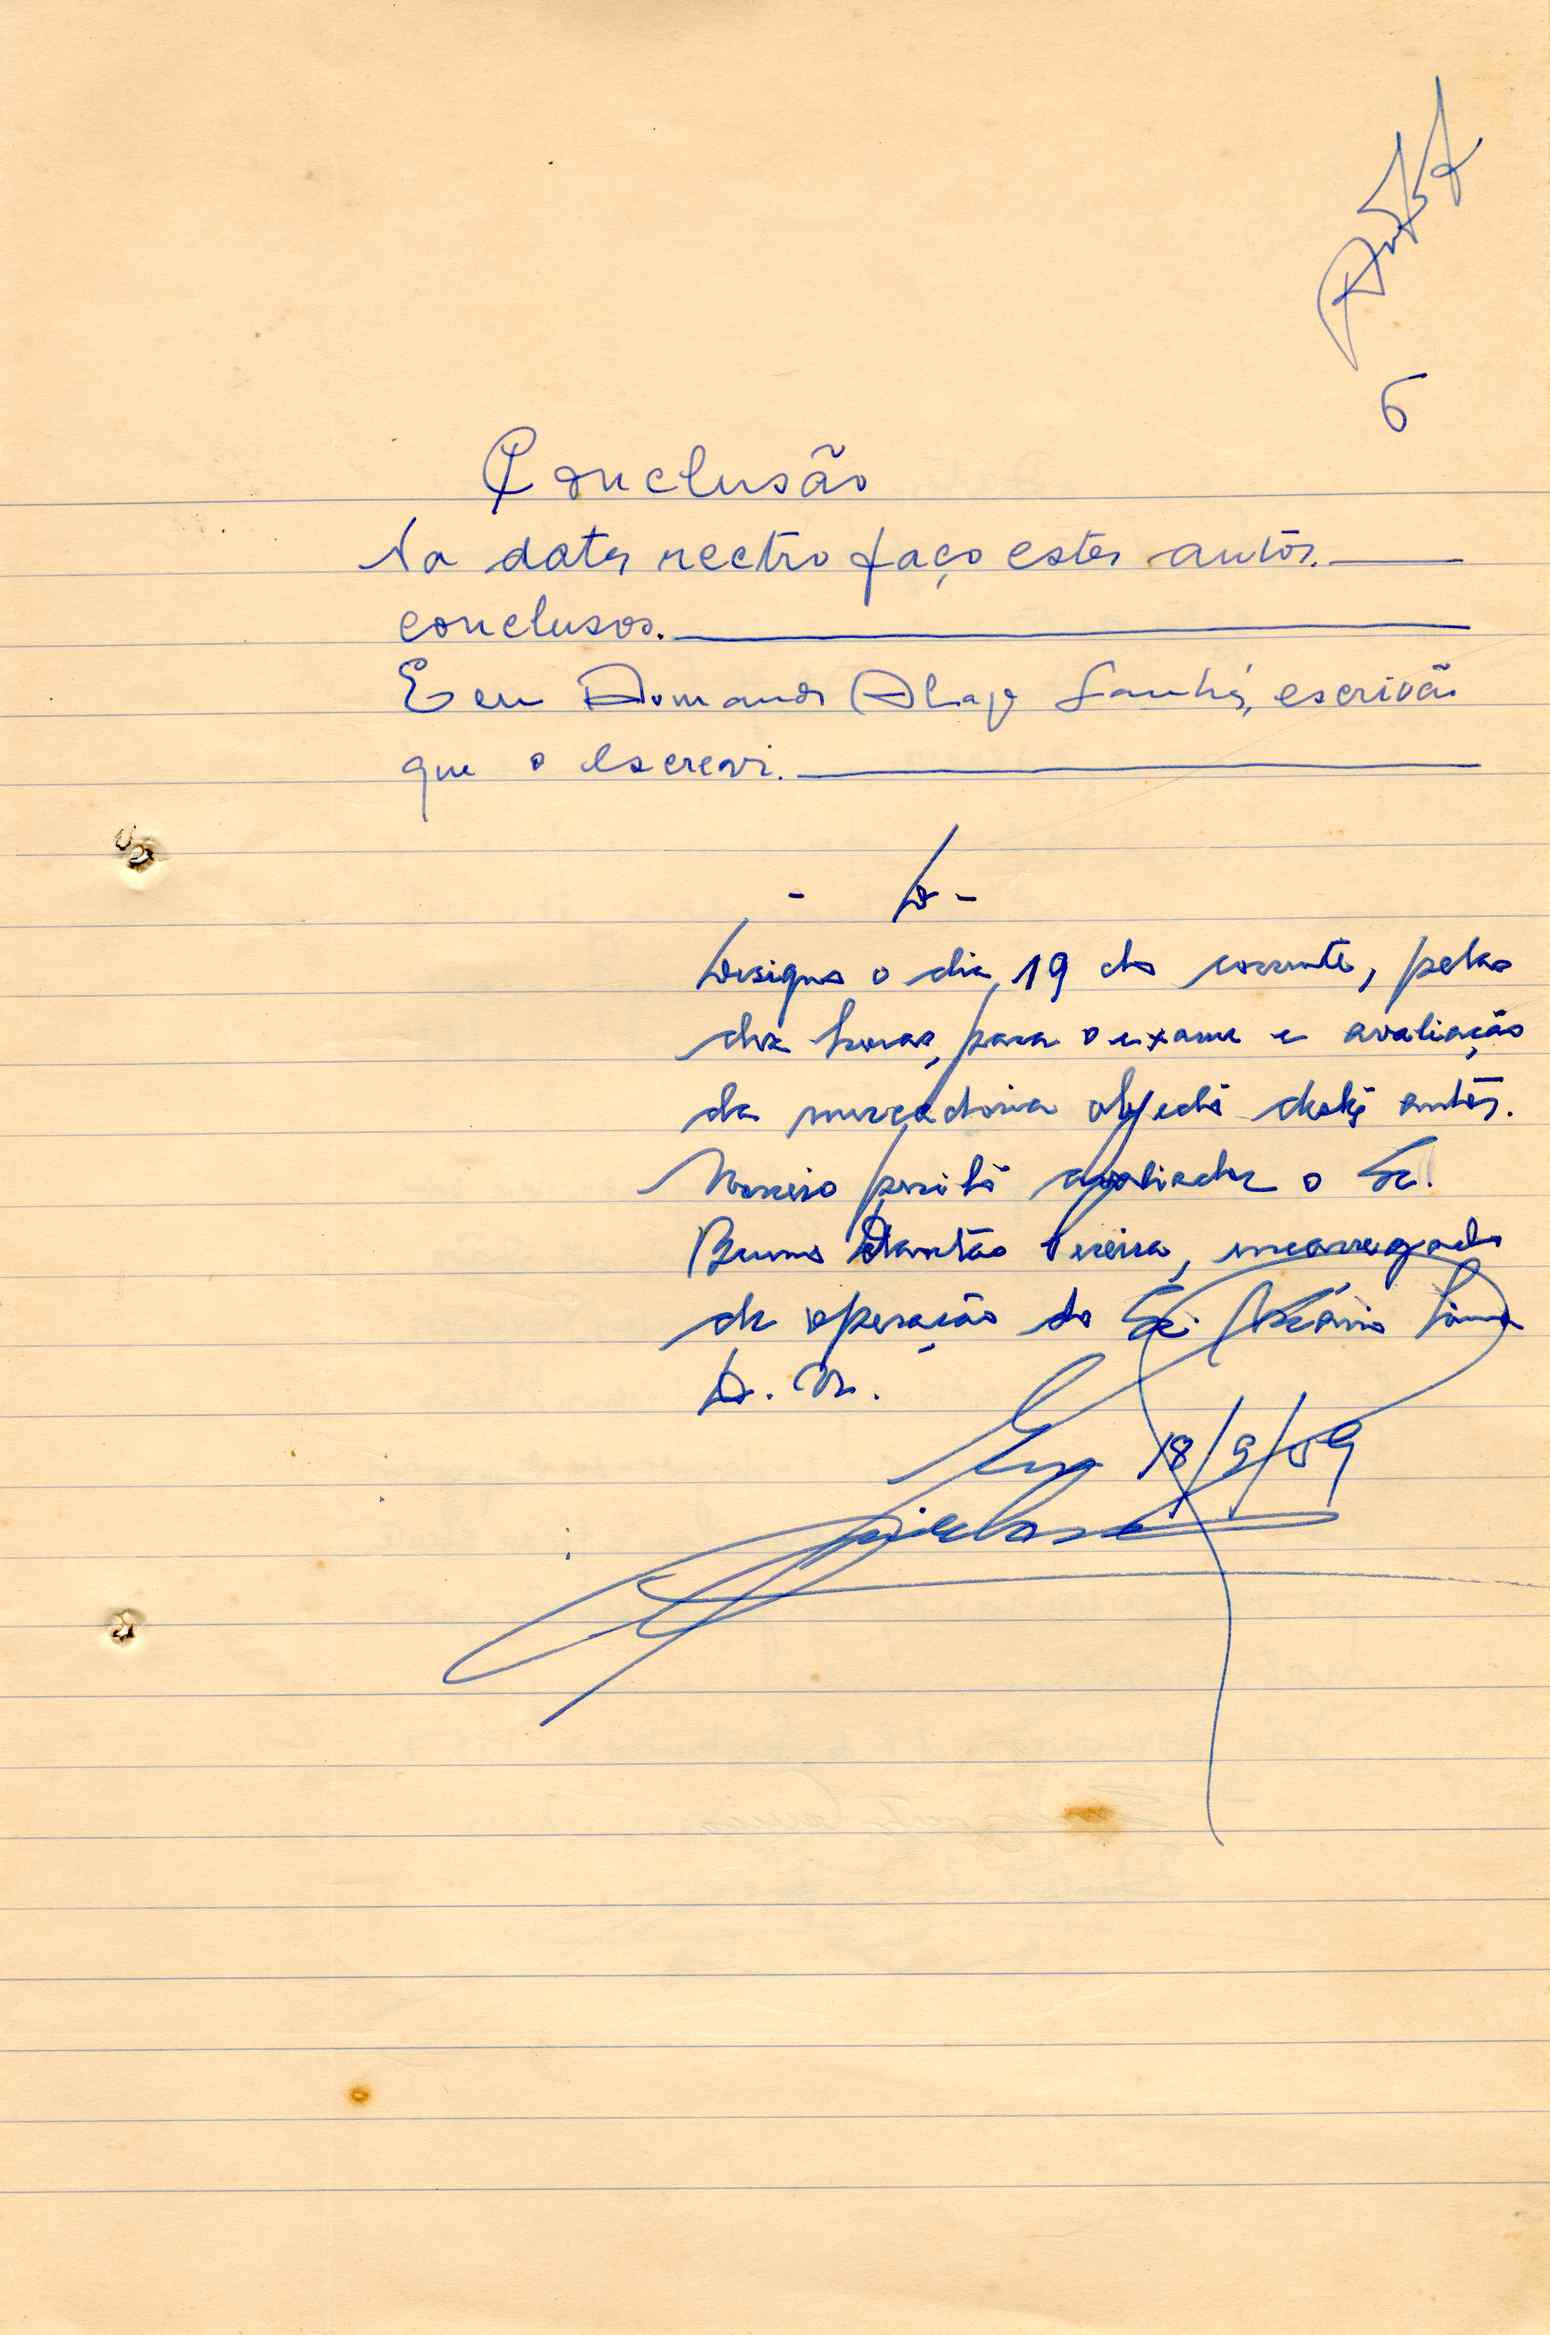 6
Conclusão
Na data rectro faço estes autos
conclusos.
E eu Armando Sanhá, escrivão
que o escrevi.
- D -
Designo o dia 19 do corrente, pelas
dez horas, para o exame e avaliação
da mercadoria objecto destes autos.
Nomeio perito avaliador o Sr.
Bruno Vieira, encarregado
de operação do Sr. Mário Lima
D. N.
18/9/59